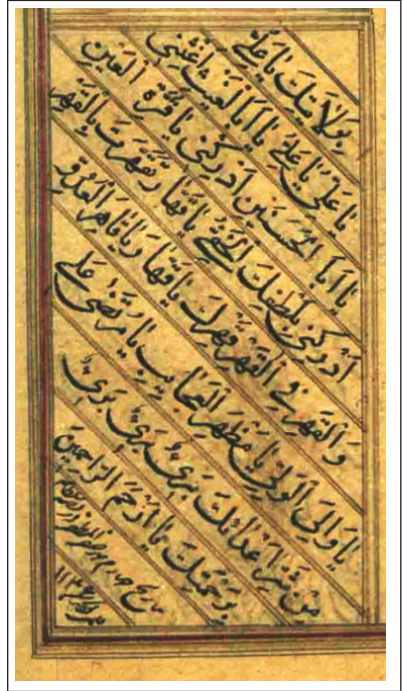 بِوِلَايَتِكَ يَا عَلِيُّ
يَا عَلِيُّ يَا عَلِيُّ يَا اَبَا الْغَيْثِ اَغِثْنِي
يَا اَبَا الْحَسَنَيْنِ اَدْرِكْنِي يَا قُرَّةَ الْعَيْنِ
اَدْرِكْنِي بِلُطْفِكَ الْخَفِيِّ يَا قَهَّارُ تَقَهَّرْتَ بِالْقَهْرِ
وَالْقَهْرُ فِي الْقَهْرِ قَهْرِكَ يَا قَهَّارُ وَيَا قَاهِرَ الْعَدُوِّ
يَا وَالِيَ الْوَلِيِّ يَا مَظْهَرَ الْعَجَايِبِ يَا مُرْتَضَى عَلِي
مِنْ شَرِّ اَعْدَائِكَ بَرِيٌ بَرِيٌ بَرِيٌ
بِرَحْمَتِكَ يَا اَرْحَمَ الرَّاحِمِينَ